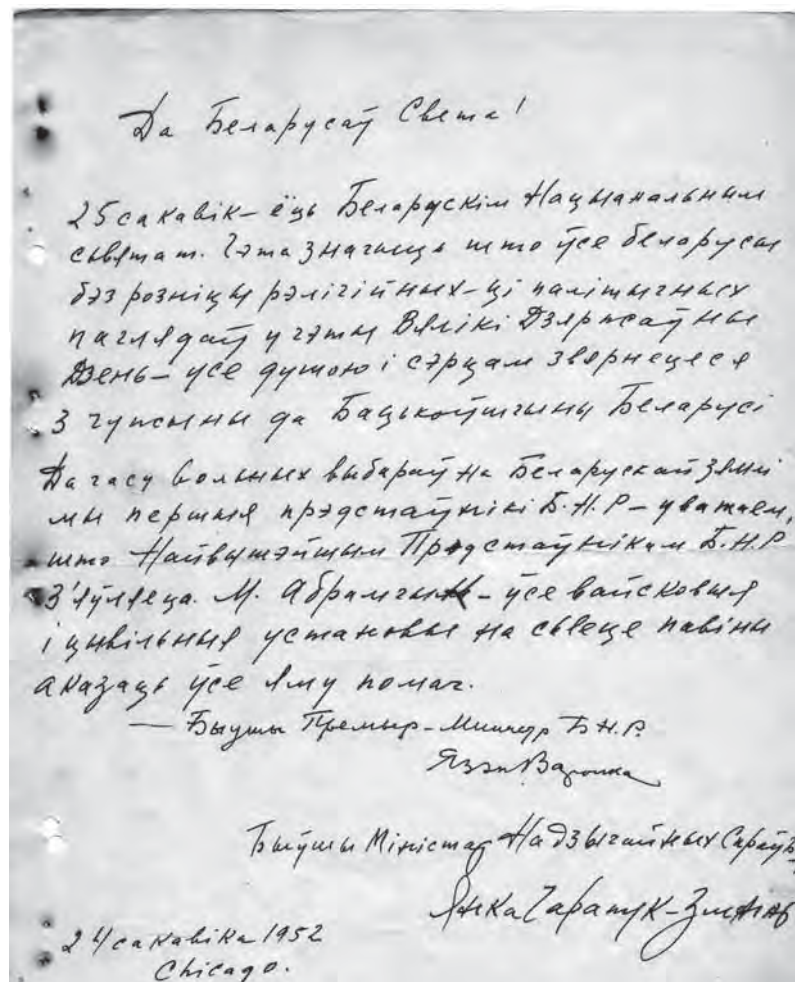 Да Беларусаў Света!
25 сакавік – ёць Беларускім Нацыанальным
сьвятам. Гэта значыць што ўсе беларусы
бэз розніцы рэлігійных – ці палітычных
паглядаў у гэты Вялікі Дзяржаўны
Дзень – усе душою і сэрцам звярнецеся
з чужыны да Бацькоўшчыны Беларусі
Да часу вольных выбараў на Беларускай зямлі
мы першыя прэдстаўнікі Б.Н.Р – уважаем,
што Найвышэйшым Прэдстаўнікам Б.Н.Р
з'яўляеца. М. Абрамчык – ўсе вайсковыя
і цывільныя установы на сьвеце павіны
аказаць ўсе яму помач.
— Быушы Премьер-Министр Б.Н.Р.
Язэп Варонка
Быўшы Міністар Надзвычайных Спраў
Янка Чарапук-Змагар
24 сакавіка 1952
Chicago.